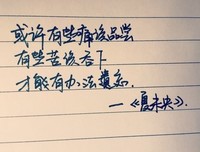 或许有些痛该品尝
有些苦该吞下
才能有办法遗忘.
—《夏未央》.